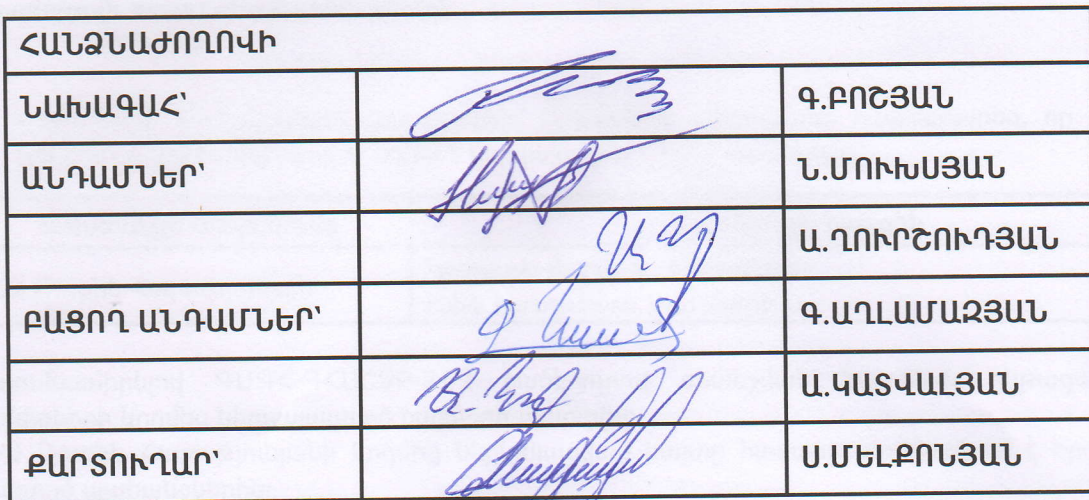 ՀԱՆՁՆԱԺՈՂՈՎԻ
ՆԱԽԱԳԱՀ՝ Գ.ԲՈՇՅԱՆ
ԱՆԴԱՄՆԵՐ՝ Ն.ՄՈՒԽՍՅԱՆ
Ա.ՂՈՒՐՇՈՒԴՅԱՆ
ԲԱՑՈՂ ԱՆԴԱՄՆԵՐ՝ Գ.ԱՂԼԱՄԱԶՅԱՆ
Ա.ԿԱՏՎԱԼՅԱՆ
ՔԱՐՏՈՒՂԱՐ՝ Ս.ՄԵԼՔՈՆՅԱՆ